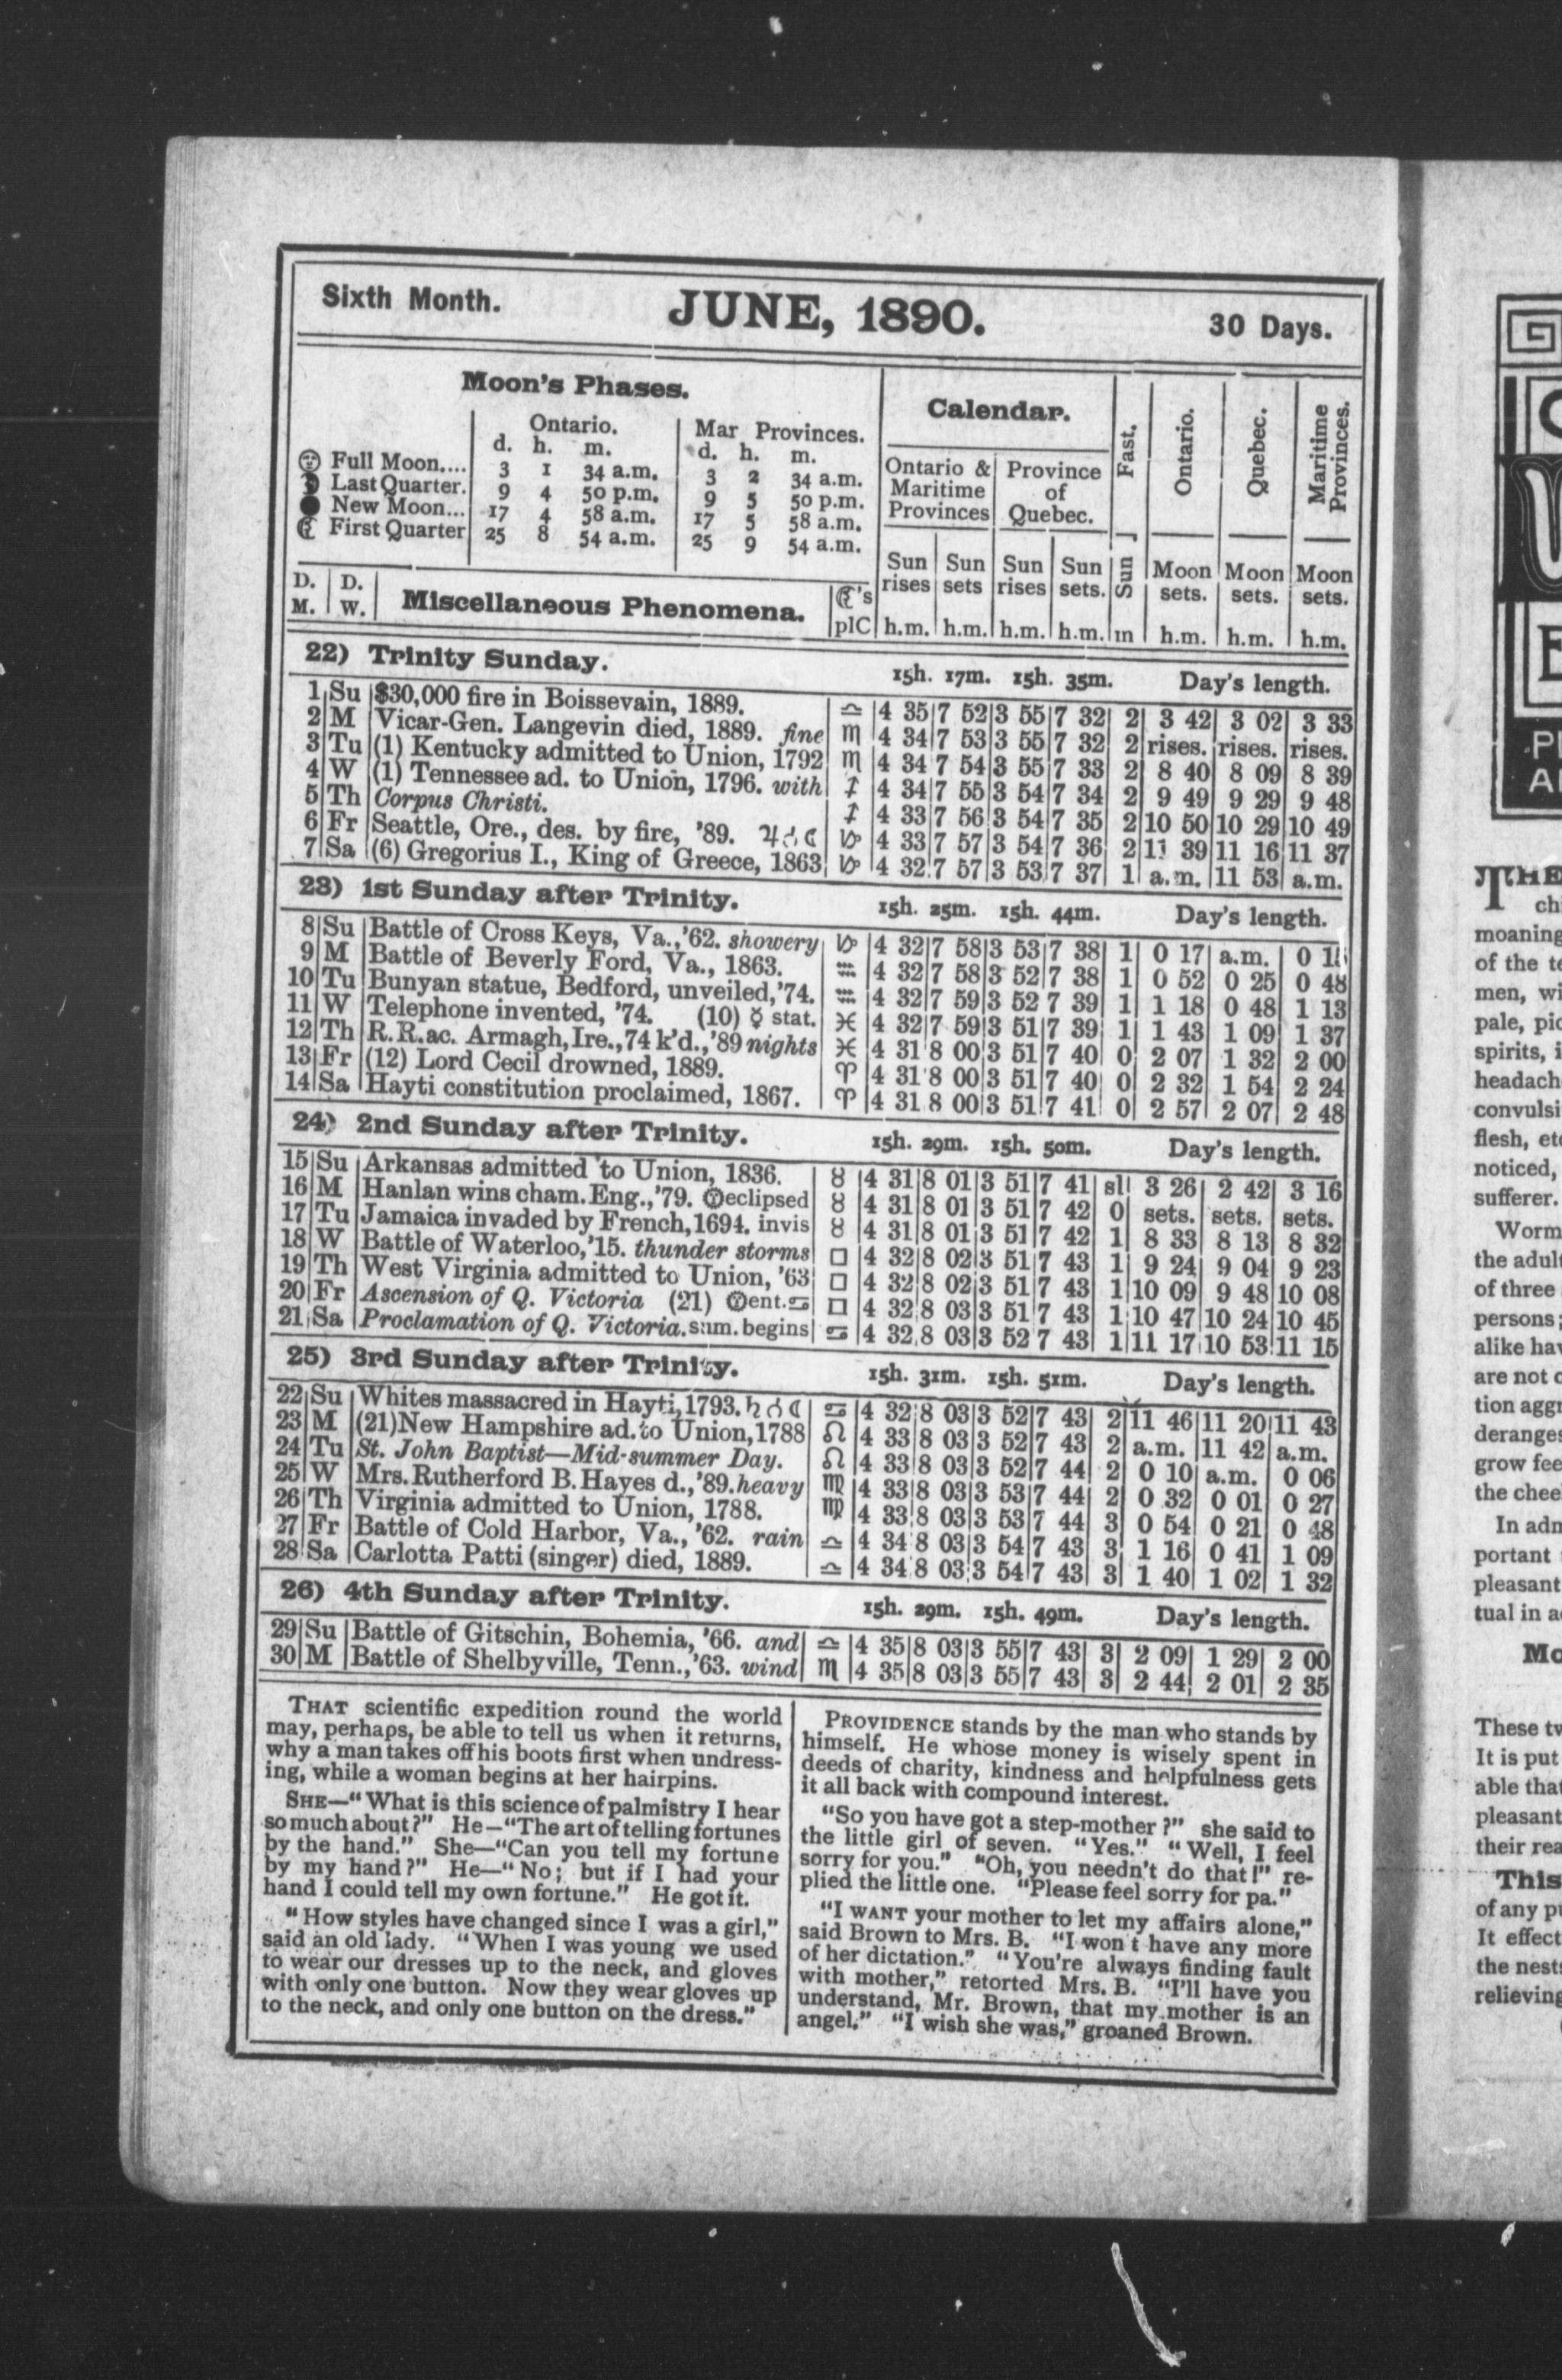 Sixth Month. JUNE, 1890. 30 Days.
Moon's Phases.
Ontario. Mar Provinces.
d. h. m. d. h. m.
Full Moon.... 3 1 34 a.m. 3 2 34 a.m.
Last Quarter. 9 4 50 p.m. 9 5 50 p.m.
New Moon... 17 4 58 a.m. 17 5 58 a.m.
First Quarter 25 8 54 a.m. 25 9 54 a.m.
Calendar.
Ontario & Maritime Provinces
Province of Quebec.
Sun Fast.
Ontario.
Quebec.
Maritime Provinces.
D. M. D. W. Miscellaneous Phenomena. ☾'s plC
Sun rises Sun sets Sun rises Sun sets. Moon sets. Moon sets. Moon sets.
h.m. h.m. h.m. h.m. m h.m. h.m. h.m.
22) Trinity Sunday. 15h. 17m. 15h. 35m. Day's length.
1 Su $30,000 fire in Boissevain, 1889. ♎ 4 35 7 52 3 55 7 32 2 3 42 3 02 3 33
2 M Vicar-Gen. Langevin died, 1889. fine ♏ 4 34 7 53 3 55 7 32 2 rises. rises. rises.
3 Tu (1) Kentucky admitted to Union, 1792 ♏ 4 34 7 54 3 55 7 33 2 8 40 8 09 8 39
4 W (1) Tennessee ad. to Union, 1796. with ♐ 4 34 7 55 3 54 7 34 2 9 49 9 29 9 48
5 Th Corpus Christi. ♐ 4 33 7 56 3 54 7 35 2 10 50 10 29 10 49
6 Fr Seattle, Ore., des. by fire, '89. ♃☌☾ ♑ 4 33 7 57 3 54 7 36 2 11 39 11 16 11 37
7 Sa (6) Gregorius I., King of Greece, 1863 ♑ 4 32 7 57 3 53 7 37 1 a.m. 11 53 a.m.
23) 1st Sunday after Trinity. 15h. 25m. 15h. 44m. Day's length.
8 Su Battle of Cross Keys, Va.,'62. showery ♑ 4 32 7 58 3 53 7 38 1 0 17 a.m. 0
9 M Battle of Beverly Ford, Va., 1863. ♒ 4 32 7 58 3 52 7 38 1 0 52 0 25 0 48
10 Tu Bunyan statue, Bedford, unveiled,'74. ♒ 4 32 7 59 3 52 7 39 1 1 18 0 48 1 13
11 W Telephone invented, '74. (10) ☿ stat. ♓ 4 32 7 59 3 51 7 39 1 1 43 1 09 1 37
12 Th R.R.ac. Armagh,Ire.,74 k'd.,'89 nights ♓ 4 31 8 00 3 51 7 40 0 2 07 1 32 2 00
13 Fr (12) Lord Cecil drowned, 1889. ♈ 4 31 8 00 3 51 7 40 0 2 32 1 54 2 24
14 Sa Hayti constitution proclaimed, 1867. ♈ 4 31 8 00 3 51 7 41 0 2 57 2 07 2 48
24) 2nd Sunday after Trinity. 15h. 29m. 15h. 50m. Day's length.
15 Su Arkansas admitted to Union, 1836. ♉ 4 31 8 01 3 51 7 41 sl 3 26 2 42 3 16
16 M Hanlan wins cham.Eng.,'79. ☉eclipsed ♉ 4 31 8 01 3 51 7 42 0 sets. sets. sets.
17 Tu Jamaica invaded by French,1694. invis ♉ 4 31 8 01 3 51 7 42 1 8 33 8 13 8 32
18 W Battle of Waterloo,'15. thunder storms □ 4 32 8 02 3 51 7 43 1 9 24 9 04 9 23
19 Th West Virginia admitted to Union, '63 □ 4 32 8 02 3 51 7 43 1 10 09 9 48 10 08
20 Fr Ascension of Q. Victoria (21) ☉ent.♋ □ 4 32 8 03 3 51 7 43 1 10 47 10 24 10 45
21 Sa Proclamation of Q. Victoria. sum. begins ♋ 4 32 8 03 3 52 7 43 1 11 17 10 53 11 15
25) 3rd Sunday after Trinity. 15h. 31m. 15h. 51m. Day's length.
22 Su Whites massacred in Hayti,1793. ♄☌☾ ♋ 4 32 8 03 3 52 7 43 2 11 46 11 20 11 43
23 M (21)New Hampshire ad.to Union,1788 ♌ 4 33 8 03 3 52 7 43 2 a.m. 11 42 a.m.
24 Tu St. John Baptist—Mid-summer Day. ♌ 4 33 8 03 3 52 7 44 2 0 10 a.m. 0 06
25 W Mrs. Rutherford B. Hayes d.,'89. heavy ♍ 4 33 8 03 3 53 7 44 2 0 32 0 01 0 27
26 Th Virginia admitted to Union, 1788. ♍ 4 33 8 03 3 53 7 44 3 0 54 0 21 0 48
27 Fr Battle of Cold Harbor, Va., '62. rain ♎ 4 34 8 03 3 54 7 43 3 1 16 0 41 1 09
28 Sa Carlotta Patti (singer) died, 1889. ♎ 4 34 8 03 3 54 7 43 3 1 40 1 02 1 32
26) 4th Sunday after Trinity. 15h. 29m. 15h. 49m. Day's length.
29 Su Battle of Gitschin, Bohemia, '66. and ♎ 4 35 8 03 3 55 7 43 3 2 09 1 29 2 00
30 M Battle of Shelbyville, Tenn.,'63. wind ♏ 4 35 8 03 3 55 7 43 3 2 44 2 01 2 35
THAT scientific expedition round the world
may, perhaps, be able to tell us when it returns,
why a man takes off his boots first when undress-
ing, while a woman begins at her hairpins.
SHE—"What is this science of palmistry I hear
so much about?" He—"The art of telling fortunes
by the hand." She—"Can you tell my fortune
by my hand?" He—"No; but if I had your
hand I could tell my own fortune." He got it.
"How styles have changed since I was a girl,"
said an old lady. "When I was young we used
to wear our dresses up to the neck, and gloves
with only one button. Now they wear gloves up
to the neck, and only one button on the dress."
PROVIDENCE stands by the man who stands by
himself. He whose money is wisely spent in
deeds of charity, kindness and helpfulness gets
it all back with compound interest.
"So you have got a step-mother?" she said to
the little girl of seven. "Yes." "Well, I feel
sorry for you." "Oh, you needn't do that!" re-
plied the little one. "Please feel sorry for pa."
"I WANT your mother to let my affairs alone,"
said Brown to Mrs. B. "I won't have any more
of her dictation." "You're always finding fault
with mother," retorted Mrs. B. "I'll have you
understand, Mr. Brown, that my mother is an
angel." "I wish she was," groaned Brown.
THE
moaning
of the
men,
pale,
spirits,
headach
convulsi
flesh,
noticed,
sufferer.
Worm
the adult
of three
persons;
alike
are not
tion
deranges
grow
the
In
portant
pleasant
tual in
These
It is put
able that
pleasant
their
This
of any
It effect
the
relieving